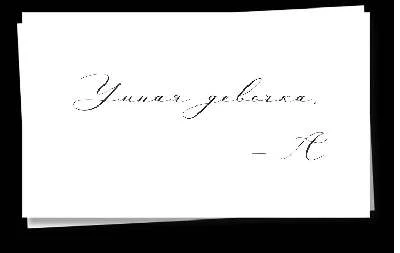 Умная девочка.
— А